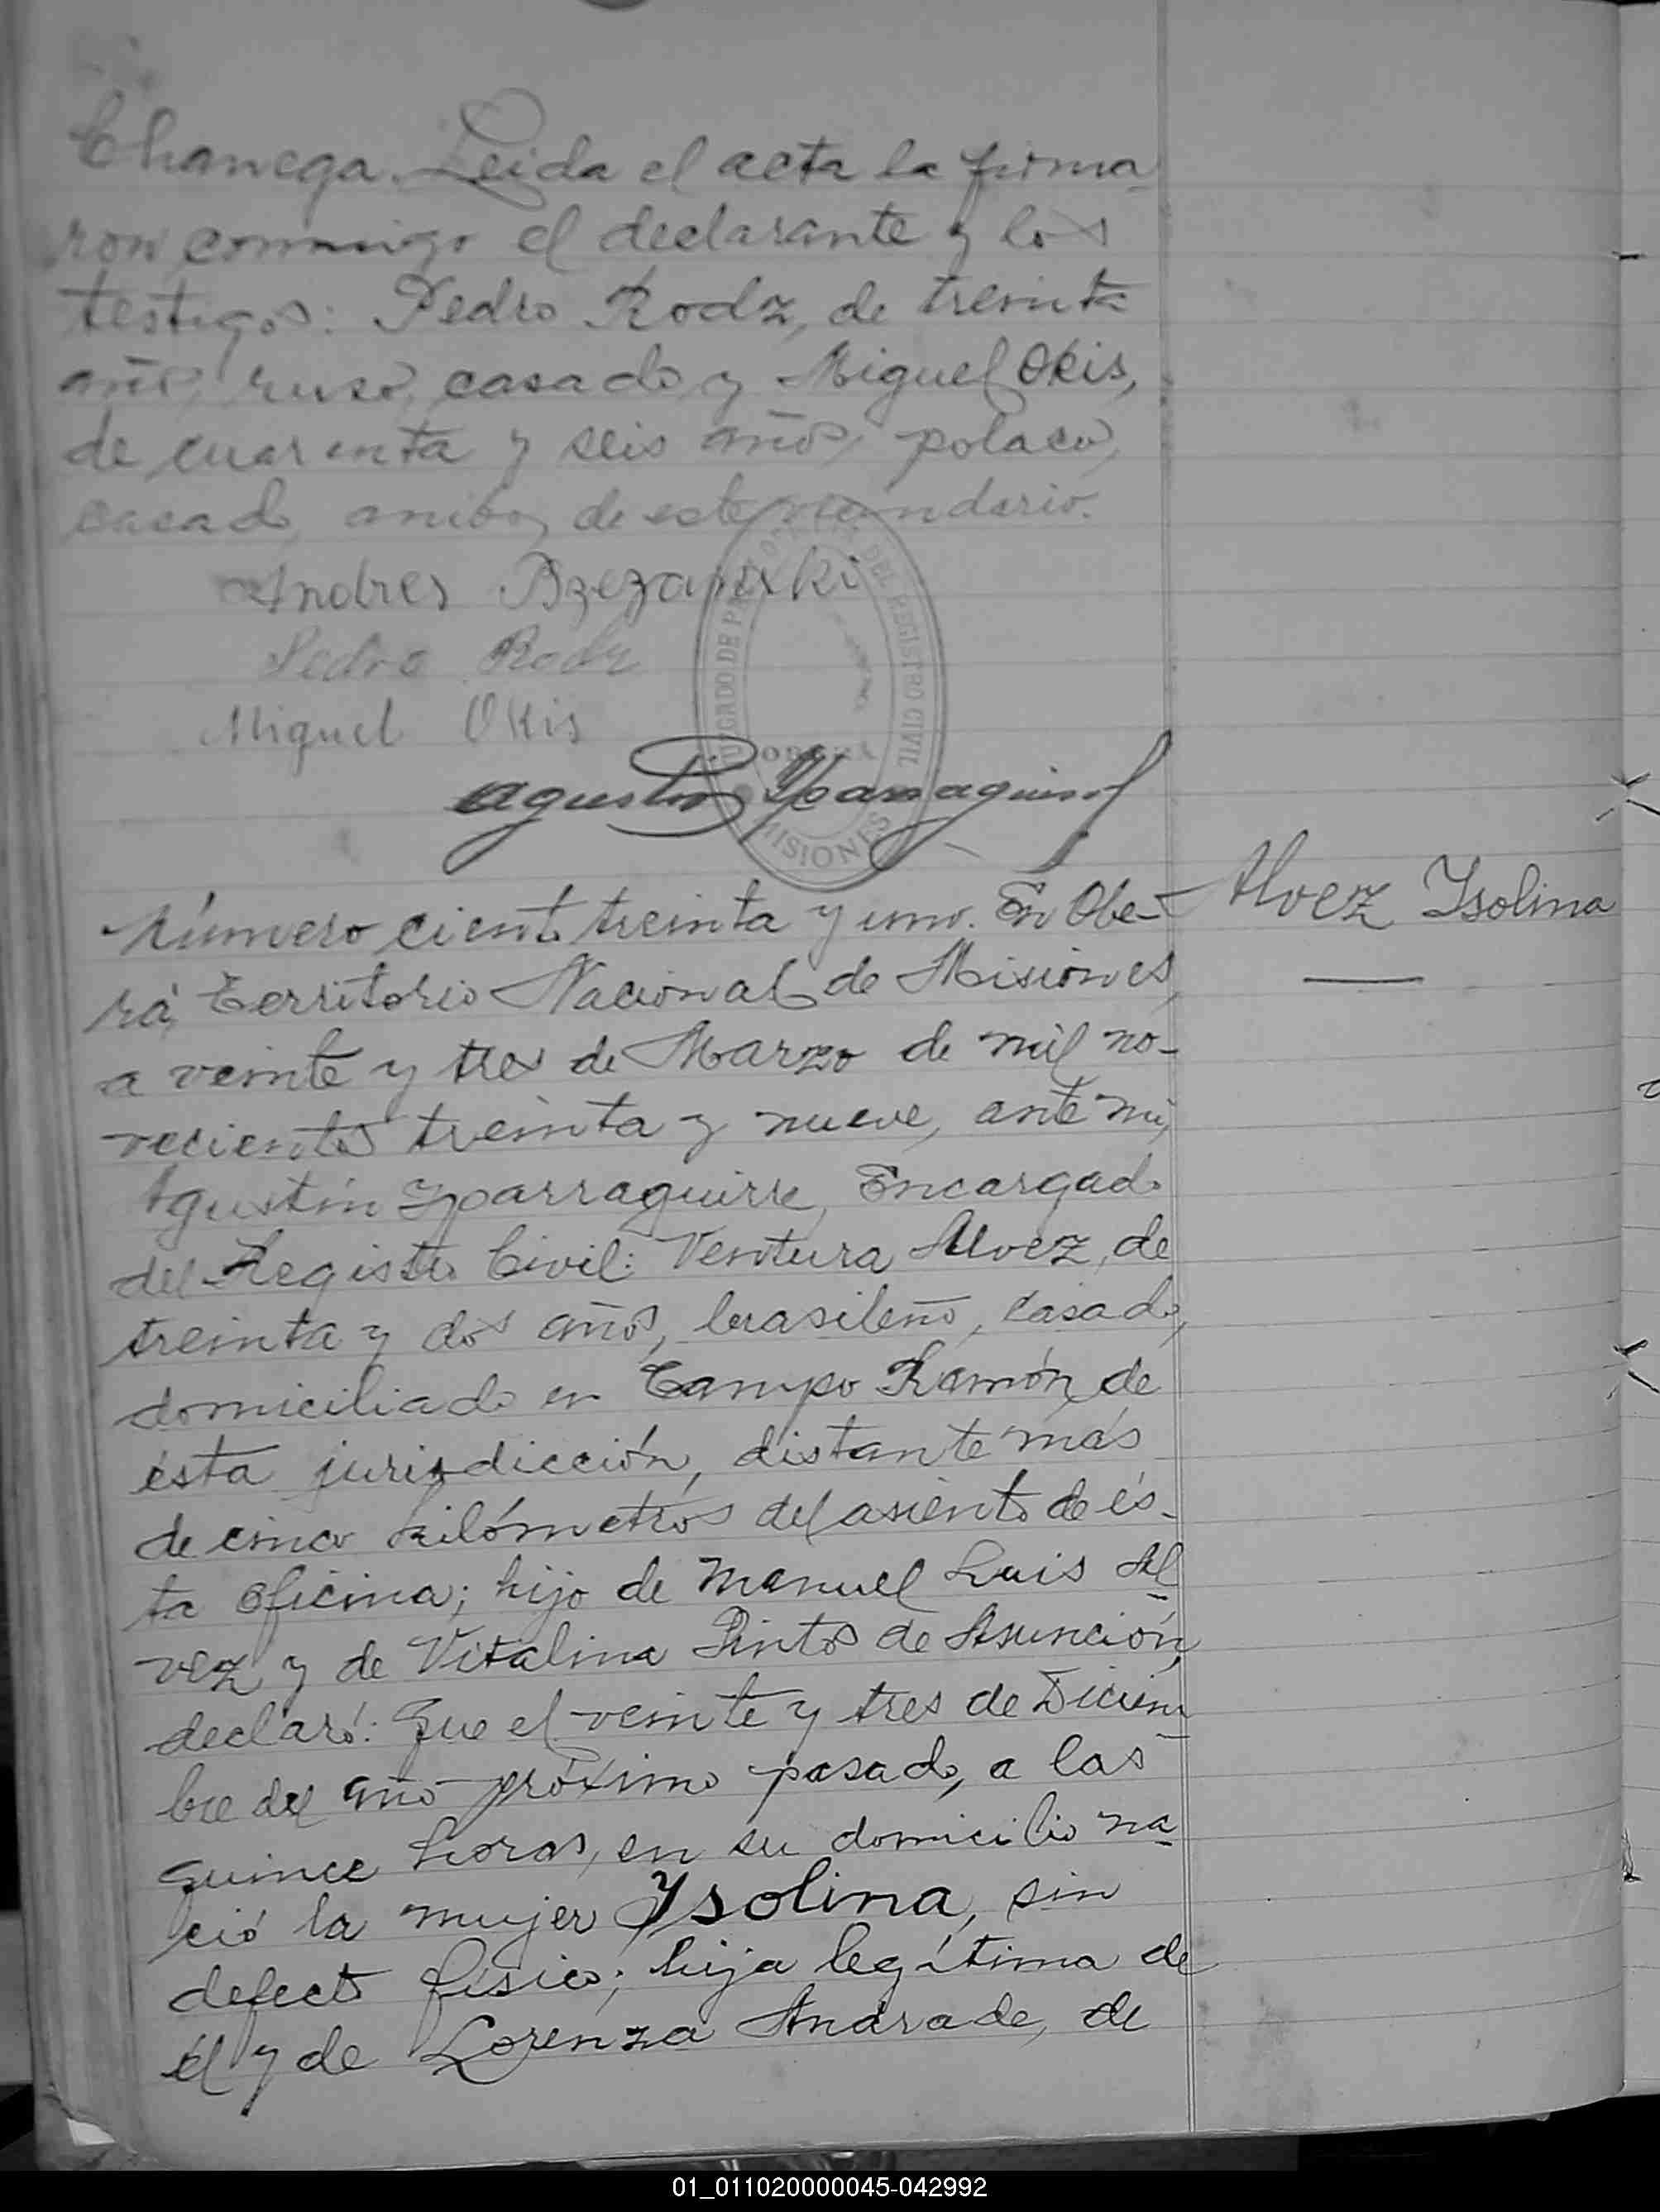 Chanega. Leida el acta la firma-
ron conmigo el declarante y los
testigos: Pedro Rodz, de treinta
años, ruso, casado y Miguel Okis,
de cuarenta y seis años, polaco,
casado, ambos de este vecindario.
Andres
Pedro Rodz
Miguel Okis
JUZGADO DE PAZ DEL REGISTRO CIVIL
OBERÁ
MISIONES
Agustin Yparraguirre
Alvez Ysolina
Número ciento treinta y uno. En Obe-
rá, Territorio Nacional de Misiones,
a veinte y tres de Marzo de mil no-
vecientos treinta y nueve, ante mi,
Agustín Yparraguirre, Encargado
del Registro Civil: Ventura Alvez, de
treinta y dos años, brasileño, casado,
domiciliado en Campo Ramón de
ésta jurisdicción, distante más
de cinco kilómetros del asiento de és-
ta oficina; hijo de Manuel Luis Al-
vez y de Vitalina Pintos de Asunción,
declaró: Que el veinte y tres de Diciem-
bre del año próximo pasado, a las
quince horas, en su domicilio na-
ció la mujer Ysolina, sin
defecto físico; hija legítima de
él y de Lorenza Andrade, de
01_011020000045-042992